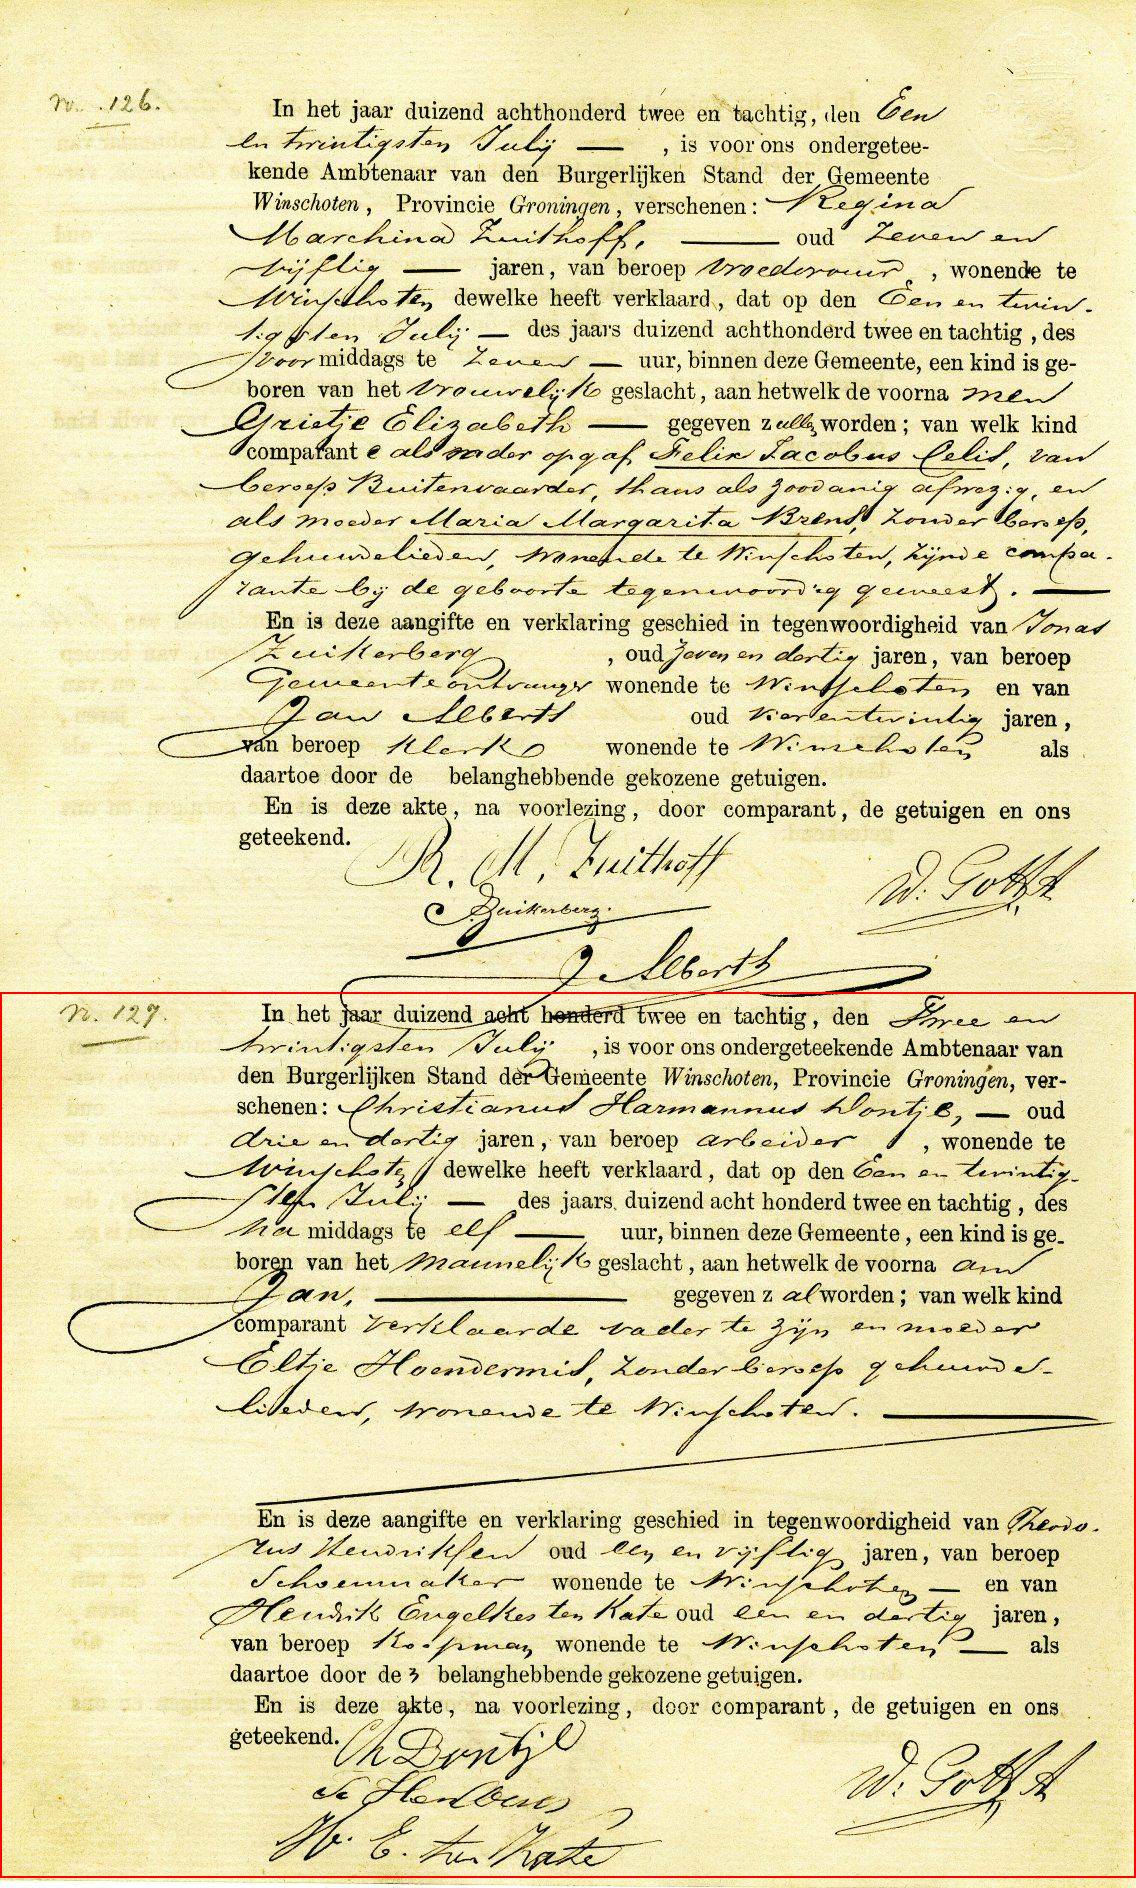 N. 126.
In het jaar duizend achthonderd twee en tachtig, den Een
en twintigsten Julij — , is voor ons ondergetee-
kende Ambtenaar van den Burgerlijken Stand der Gemeente
Winschoten, Provincie Groningen, verschenen: Regina
Marchina Zuithoff, — oud zeven en
vijftig — jaren, van beroep vroedvrouw, wonende te
Winschoten dewelke heeft verklaard, dat op den Een en twin-
tigsten Julij — des jaars duizend achthonderd twee en tachtig, des
voormiddags te zeven — uur, binnen deze Gemeente, een kind is ge-
boren van het vrouwelijk geslacht, aan hetwelk de voornamen
Grietje Elizabeth — gegeven zullen worden; van welk kind
comparante als vader opgaf Felix Jacobus Celis, van
beroep Buitenvaarder, thans als zoodanig afwezig, en
als moeder Maria Margarita Brens, zonder beroep,
gehuwdelieden, wonende te Winschoten, zijnde compa-
rante bij de geboorte tegenwoordig geweest. —
En is deze aangifte en verklaring geschied in tegenwoordigheid van Jonas
Zuikerberg , oud zeven en dertig jaren, van beroep
Gemeenteontvanger wonende te Winschoten en van
Jan Alberts oud vier en twintig jaren,
van beroep klerk wonende te Winschoten als
daartoe door de belanghebbende gekozene getuigen.
En is deze akte, na voorlezing, door comparant, de getuigen en ons
geteekend.
R. M. Zuithoff
J. Zuikerberg.
W. Gottst
J Alberts
N. 127.
In het jaar duizend acht honderd twee en tachtig, den Twee en
twintigsten Julij , is voor ons ondergeteekende Ambtenaar van
den Burgerlijken Stand der Gemeente Winschoten, Provincie Groningen, ver-
schenen: Christianus Harmannus Dontje, — oud
drie en dertig jaren, van beroep arbeider , wonende te
Winschoten dewelke heeft verklaard, dat op den Een en twintig-
sten Julij — des jaars duizend acht honderd twee en tachtig, des
namiddags te elf — uur, binnen deze Gemeente, een kind is ge-
boren van het mannelijk geslacht, aan hetwelk de voornaam
Jan, — gegeven zal worden; van welk kind
comparant verklaarde vader te zijn en moeder
Eltje Hoendermis, zonder beroep gehuwde-
lieden, wonende te Winschoten. —
En is deze aangifte en verklaring geschied in tegenwoordigheid van Theodo-
rus Hendriksen oud een en vijftig jaren, van beroep
Schoenmaker wonende te Winschoten — en van
Hendrik Engelkes ten Kate oud een en dertig jaren,
van beroep Koopman wonende te Winschoten — als
daartoe door de belanghebbende gekozene getuigen.
En is deze akte, na voorlezing, door comparant, de getuigen en ons
geteekend.
Ch Dontje
W. Gottst
H. E. ten Kate